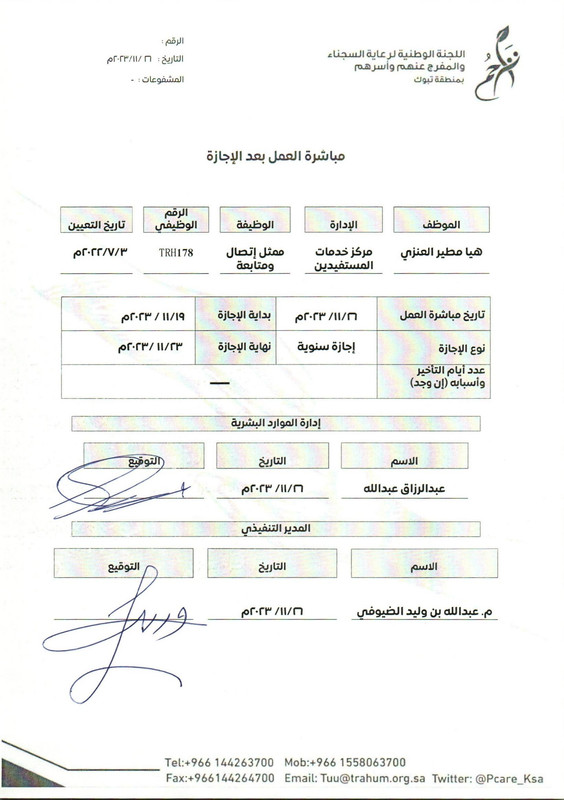 تراحم
اللجنة الوطنية لرعاية السجناء
والمفرج عنهم وأسرهم
بمنطقة تبوك
الرقم :
التاريخ : ٢٦ /٢٠٢٣/١١م
المشفوعات : -
مباشرة العمل بعد الإجازة
الموظف الإدارة الوظيفة الرقم الوظيفي تاريخ التعيين
هيا مطير العنزي مركز خدمات المستفيدين ممثل إتصال ومتابعة TRH178 ٢٠٢٢/٧/٣م
تاريخ مباشرة العمل ٢٦/١١/ ٢٠٢٣م بداية الإجازة ١١/١٩/ ٢٠٢٣م
نوع الإجازة إجازة سنوية نهاية الإجازة ١١/٢٣ /٢٠٢٣م
عدد أيام التأخير
وأسبابه (إن وجد) —
إدارة الموارد البشرية
الاسم التاريخ التوقيع
عبدالرزاق عبدالله ٢٦/١١/ ٢٠٢٣م
المدير التنفيذي
الاسم التاريخ التوقيع
م. عبدالله بن وليد الضيوفي ٢٦/١١/ ٢٠٢٣م
Tel:+966 144263700 Mob:+966 1558063700
Fax:+966144264700 Email: Tuu@trahum.org.sa Twitter: @Pcare_Ksa